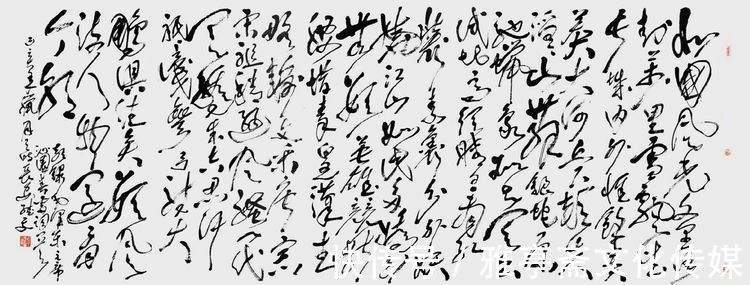 北国风光千里
封万里雪飘
长城内外惟余
莽大河上下顿
滔山舞银蛇
驰蜡象欲与天
试比高须晴日
装素裹分外妖
娆江山如此多娇
无数英雄竞折
腰惜秦皇汉武
略输文采唐宗
宋祖稍逊风骚一代
天骄成吉思汗
祇识弯弓射大
雕俱往矣数风
流人物还看
今朝
敬录毛泽东主席
沁园春雪词
快传号 / 雅亭斋文化传媒